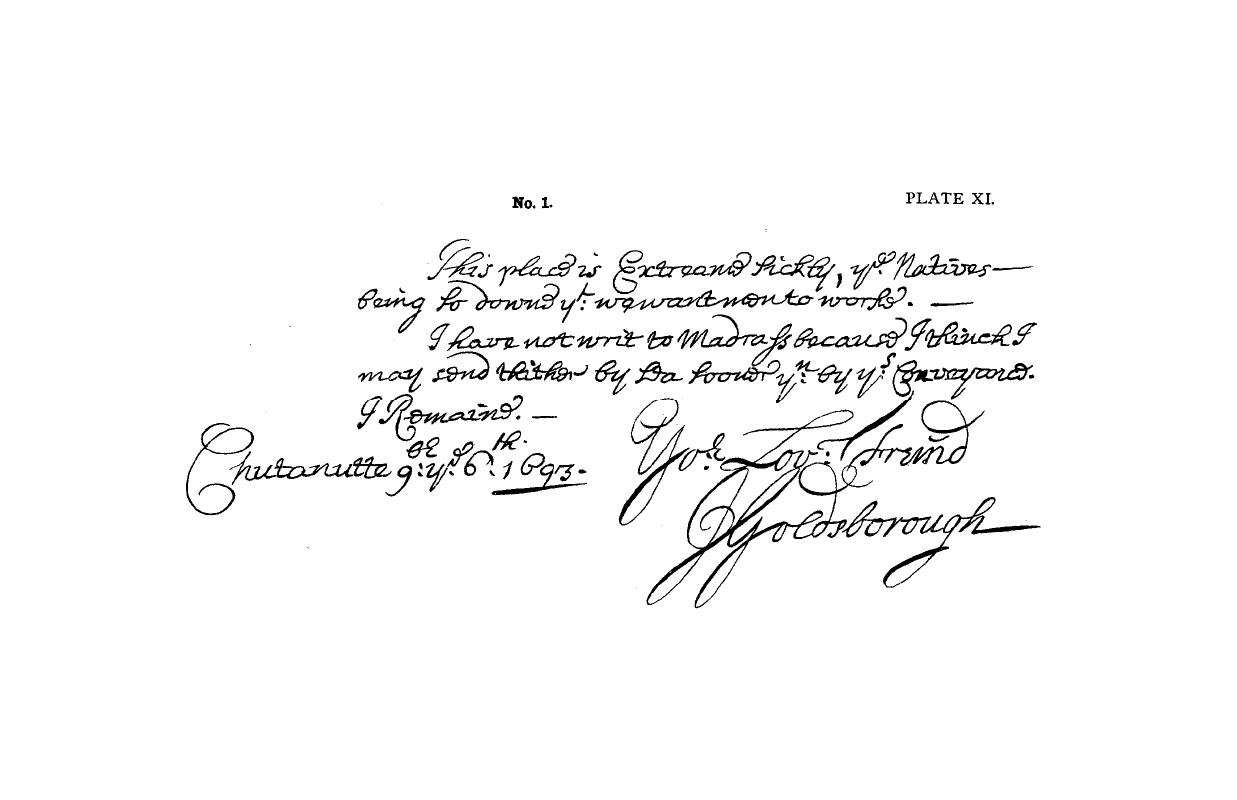 No. 1.
PLATE XI.
This place is Extreame sickly, yᵉ Natives—
being so downe yᵗ: we want men to worke. —
I have not writ to Madrass because I thinck I
may send thither by sea sooner yⁿ: by yˢ Conveyance.
I Remaine. —
Chutanutte 9:ᵇᵉ yᵉ 6:ᵗʰ 1693.
Yoʳ: Lov: Freind
J Goldsborough